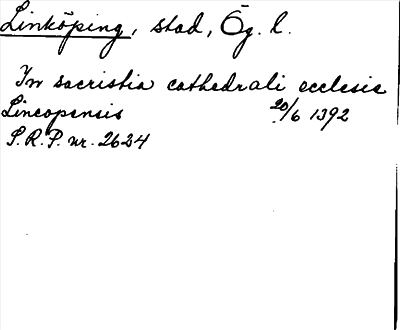 Linköping, stad, Ög. l.
In sacristia cathedrali ecclesie
Lincopensis 20/6 1392
S.R.P. nr. 2634